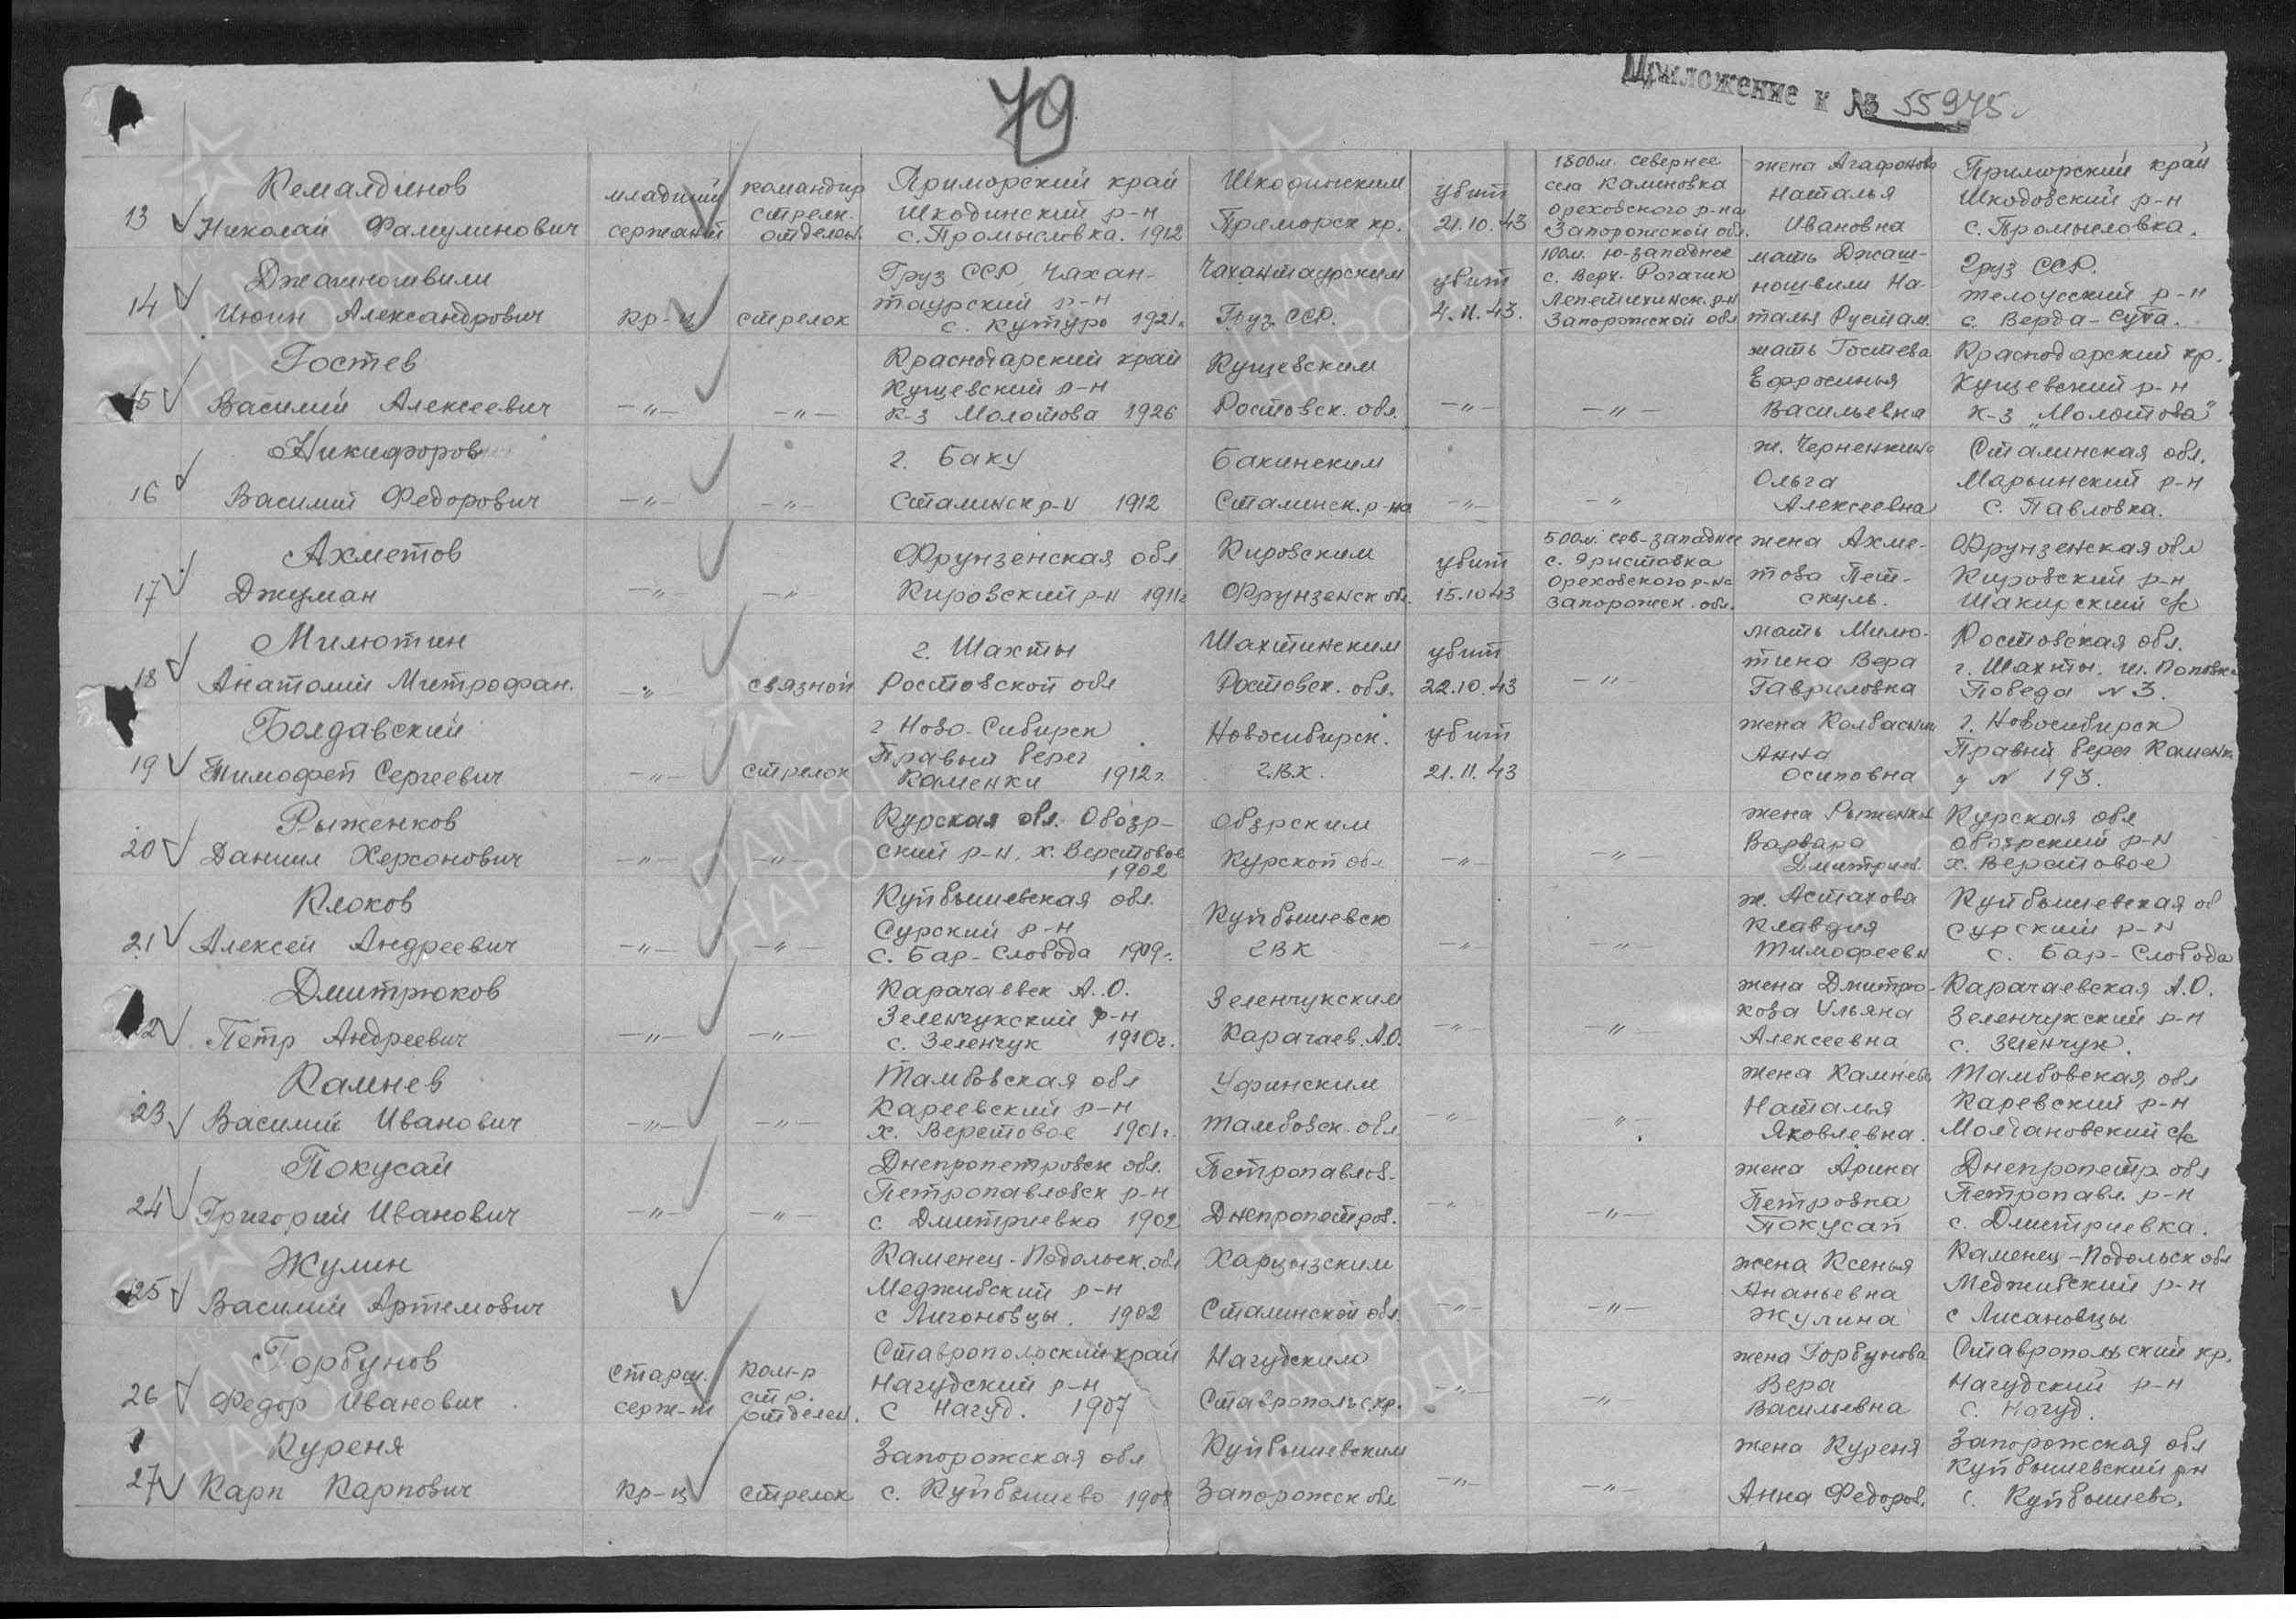 79
Приложение к № 55975
13 Кемалдинов Николай Фамулинович младший сержант командир стрелк. отделен. Приморский край Шкодинский р-н с. Промысловка. 1912 Шкодинским Приморск кр. убит 21.10.43 1800м. севернее села Калиновка Ореховского р-на Запорожской обл. жена Агафонова Наталья Ивановна Приморский край Шкодовский р-н с. Промысловка.
14 Джашношвили Июин Александрович кр-ц стрелок Груз ССР, Чахан-таурский р-н с. Кутуро 1921г. Чахантаурским Груз ССР. убит 4.11.43. 100м. ю-западнее с. Верх. Рогачик Лепетихинск. р-н Запорожской обл мать Джаш-ношвили На-талья Рустам. Груз ССР. телоусский р-н с. Верда-Суга.
15 Гостев Василий Алексеевич -"- -"- Краснодарский край Кущевский р-н к-з Молотова 1926 Кущевским Ростовск. обл. -"- -"- мать Гостева Ефросинья Васильевна Краснодарский кр. Кущевский р-н к-з „Молотова"
16 Никифоров Василий Федорович -"- -"- г. Баку Сталинск р-н 1912 Бакинским Сталинск. р-на -"- -"- ж. Черненкина Ольга Алексеевна Сталинская обл. Марьинский р-н с. Павловка.
17 Ахметов Джуман -"- -"- Фрунзенская обл Кировский р-н 1911г Кировским Фрунзенск обл. убит 15.10.43 500м. сев-западнее с. Эристовка Ореховского р-на Запорожск. обл. жена Ахме-това Пет-скуль. Фрунзенская обл Кировский р-н Шакирский с/с
18 Милютин Анатолий Митрофан. -"- связной г. Шахты Ростовской обл Шахтинским Ростовск. обл. убит 22.10.43 -"- мать Милю-тина Вера Гавриловна Ростовская обл. г. Шахты. ш. Поповка Победа N 3.
19 Болдавский Тимофей Сергеевич -"- стрелок г Ново-Сибирск Правый берег Каменки 1912г. Новосибирск. г.в.к. убит 21.11.43 жена Колбасина Анна Осиповна г. Новосибирск Правый берег Каменки у N 193.
20 Рыженков Даниил Херсонович -"- -"- Курская обл. Обозр-ский р-н, х. Верстовое 1902 Обзрским Курской обл -"- -"- жена Рыженкова Варвара Дмитриев. Курская обл Обозрский р-н х. Верстовое
21 Клоков Алексей Андреевич -"- -"- Куйбышевская обл. Сурский р-н с. Бар-Слобода 1909г. Куйбышевск ГВК -"- -"- ж. Астахова Клавдия Тимофеевн Куйбышевская об Сурский р-н с. Бар-Слобода
22 Дмитрюков Петр Андреевич -"- -"- Карачаевск А.О. Зеленчукский р-н с. Зеленчук 1910г. Зеленчукским Карачаев. А.О. -"- -"- жена Дмитрю-кова Ульяна Алексеевна Карачаевская А.О. Зеленчукский р-н с. Зеленчук.
23 Камнев Василий Иванович -"- -"- Тамбовская обл Кареевский р-н х. Верстовое 1901г. Уфинским Тамбовск. обл -"- -"- жена Камнева Наталья Яковлевна. Тамбовская обл Каревский р-н Молчановский с/с
24 Покусай Григорий Иванович -"- -"- Днепропетровск обл. Петропавловск р-н с Дмитриевка 1902 Петропавлов. Днепропетров. -"- -"- жена Арина Петровна Покусай Днепропетр обл Петропавл. р-н с. Дмитриевка.
25 Жулин Василий Артемович Каменец-Подольск. обл Меджибский р-н с Лигоновцы. 1902 Харцызским Сталинской обл. -"- -"- жена Ксенья Ананьевна Жулина Каменец-Подольск обл Меджибский р-н с Лисановцы
26 Горбунов Федор Иванович старш. серж-т ком-р стр. отделен. Ставропольский край Нагудский р-н с Нагуд. 1907 Нагудским Ставропольс. кр. -"- -"- жена Горбунова Вера Васильевна Ставропольский кр. Нагудский р-н с. Нагуд.
27 Куреня Карп Карпович кр-ц стрелок Запорожская обл с. Куйбышево 1908 Куйбышевским Запорожск обл -"- -"- жена Куреня Анна Федоров. Запорожская обл Куйбышевский рн с. Куйбышево.
ПАМЯТЬ НАРОДА